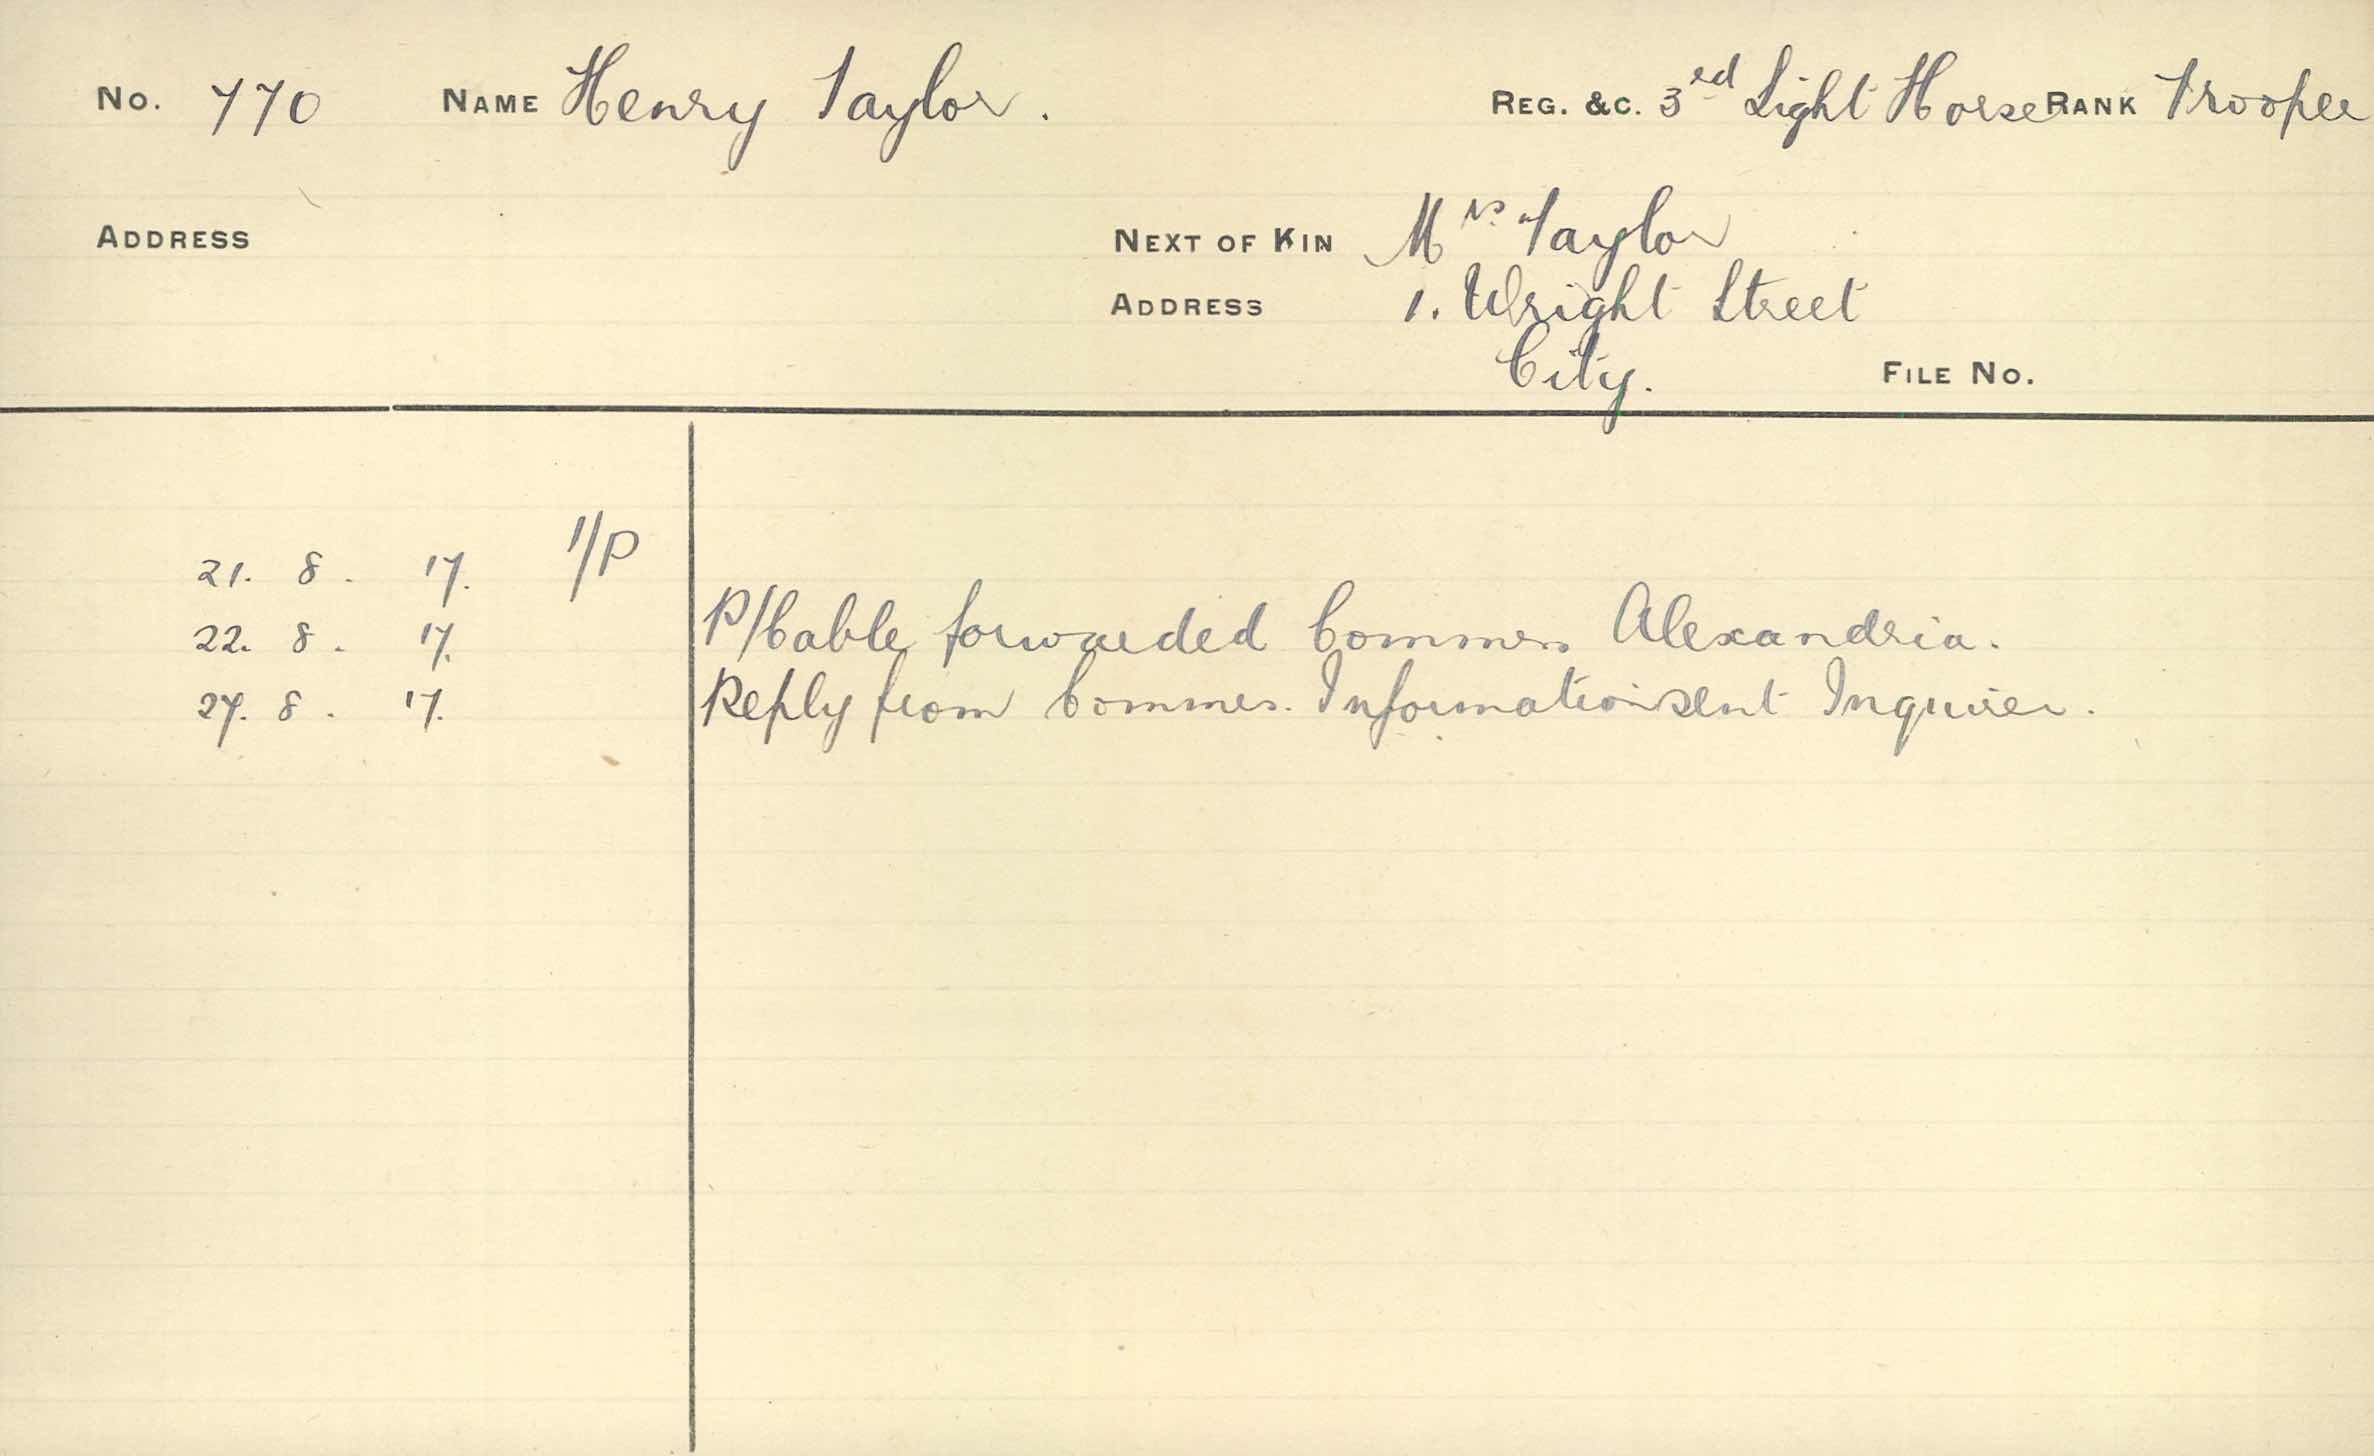 No. 770 NAME Henry Taylor. REG. &C. 3rd Light Horse RANK Trooper
ADDRESS NEXT OF KIN Mrs. Taylor
ADDRESS 1. Wright Street
City. FILE No.
21. 8. 17. 1/P
22. 8. 17. P/Cable forwarded Commrs. Alexandria.
27. 8. 17. Reply from Commrs. Information sent Inquirer.